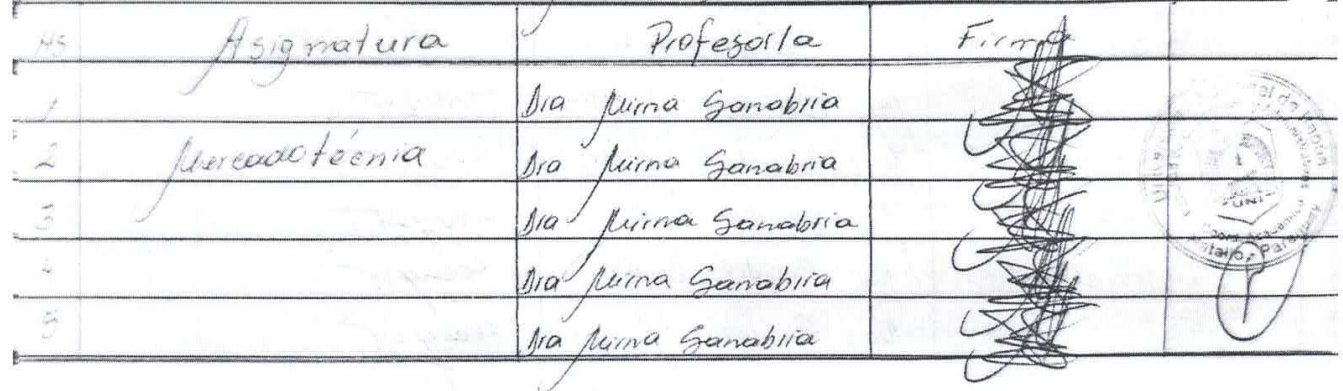 Hs Asignatura Profesor/a Firma
1 Dra Mirna Sanabria
2 Mercadotécnia Dra Mirna Sanabria
3 Dra Mirna Sanabria
4 Dra Mirna Sanabria
5 Dra Mirna Sanabria